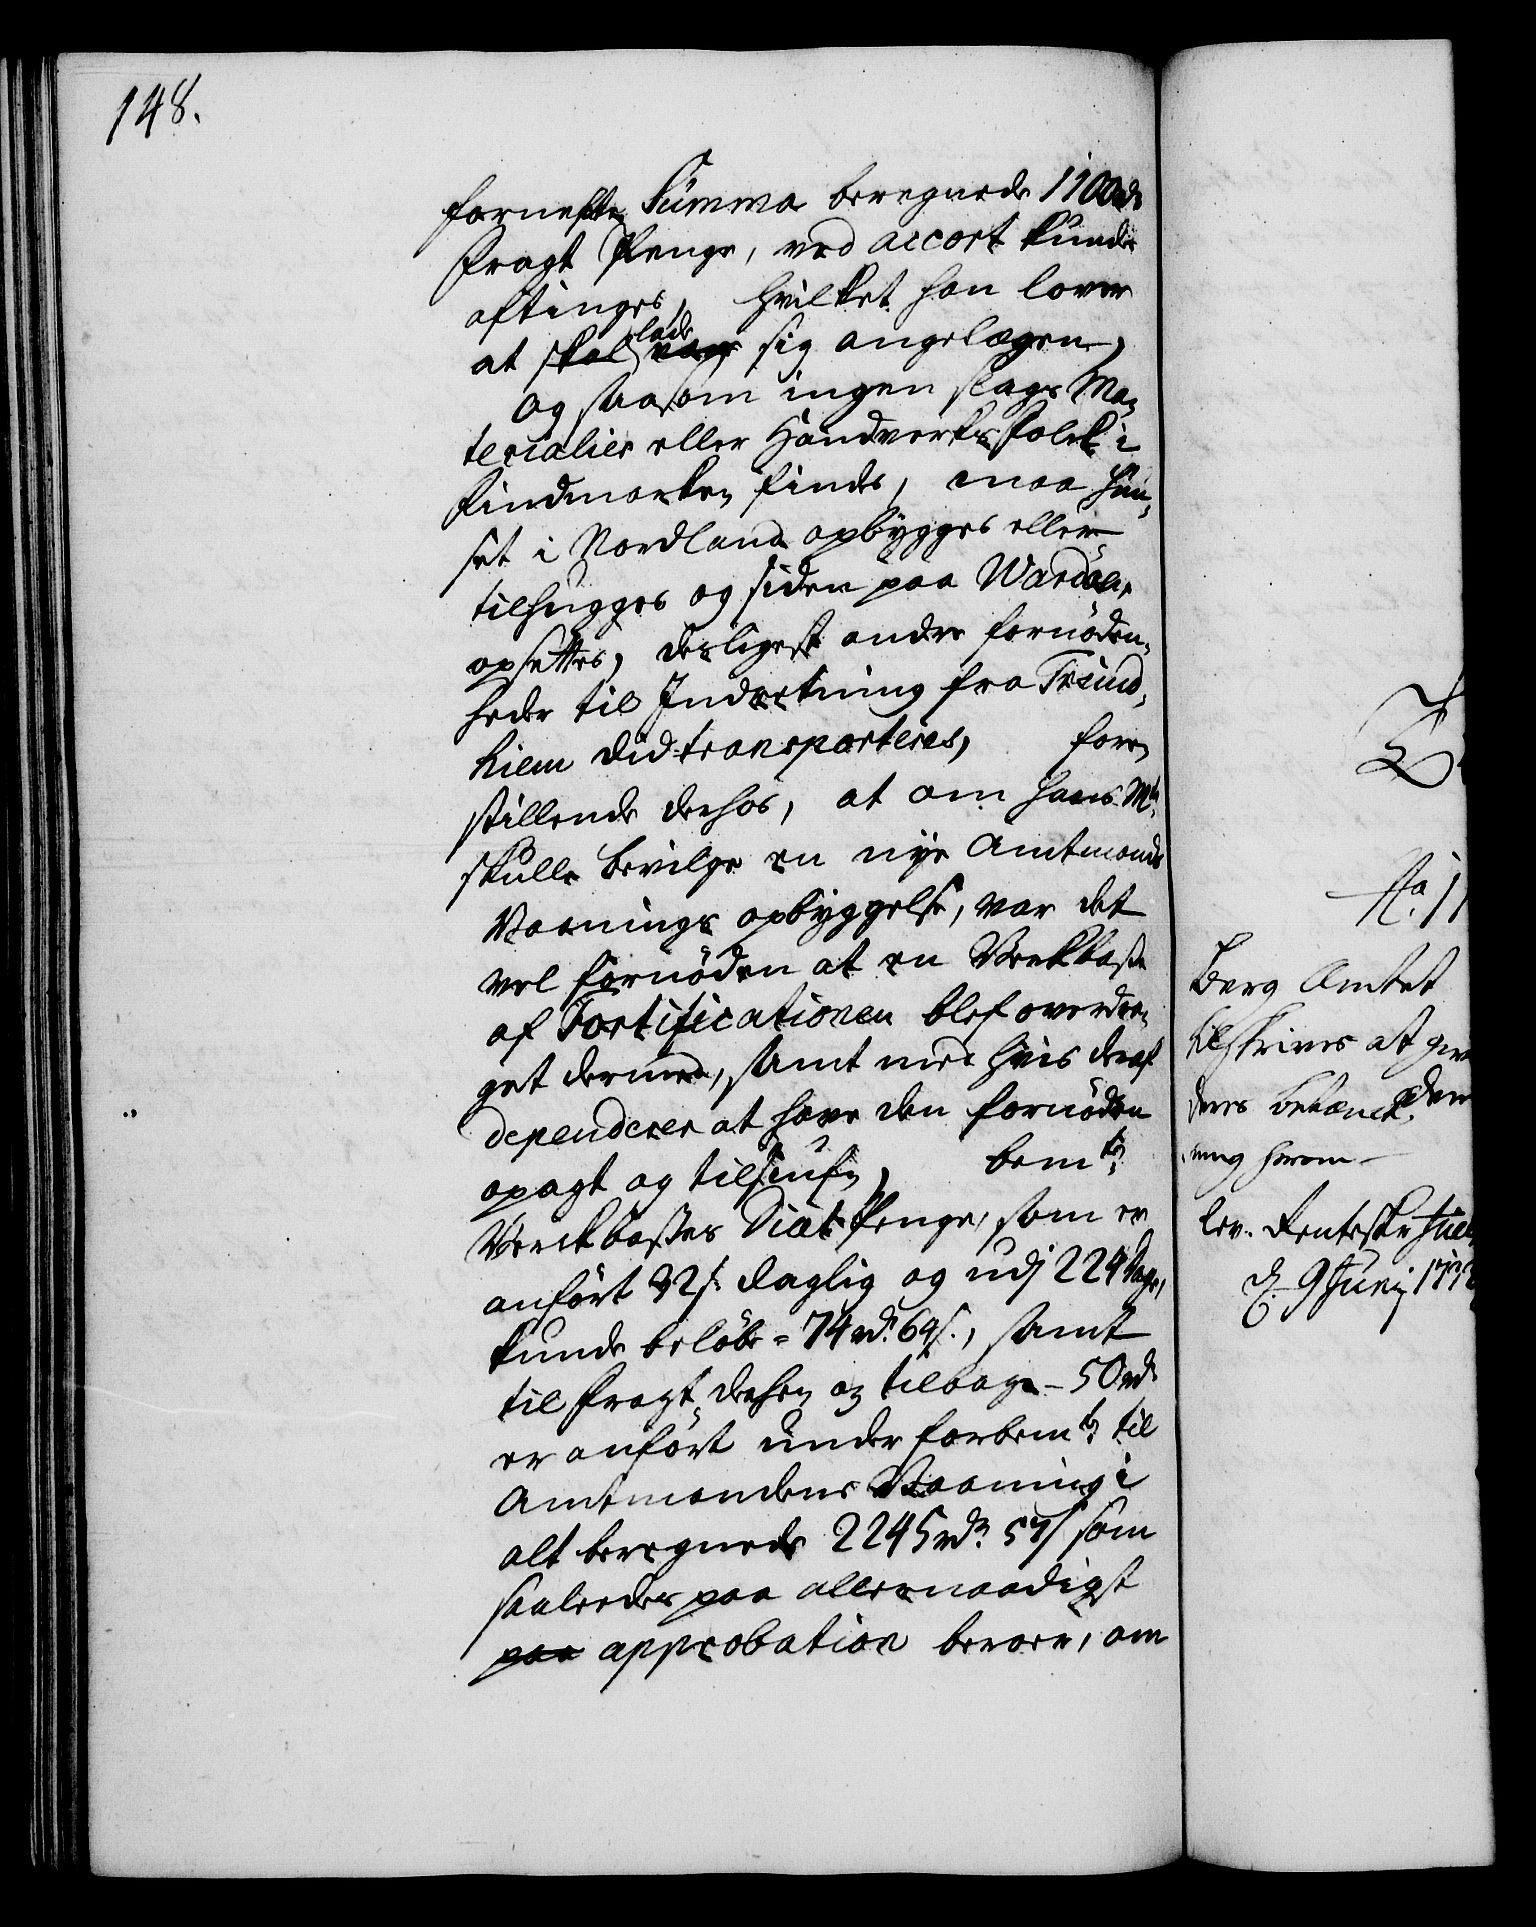 148.
fornefte Summa beregnede 1100 rd.
fragt Penge, ved accort kunde
aftinges, hvilket han lover
at skal lade være sig angelægen,
og saasom ingen slags Ma,,
terialier eller Handverks folk i
Findmarken findes, maa Huu,,
set i Nordland opbygges eller
tilhugges og siden paa Wardøe,
opsettes, desligest andre fornøden,,
heder til Indretning fra Trund,,
hiem did transporteres, fore,,
stillende derhos, at om Hans Mt.
skulle bevilge en nye Amtmands
Vaanings opbyggelse, var det
vel fornøden at en Verkbasse
af Fortificationen blef overdra,,
get dermed, samt med hvis deraf
dependerer at have den fornøden
opagt og tilsiufn, bemte
Verckbasses Diæt Penge, som er
anført 32 s. daglig og udj 224 Dage,
kunde beløbe = 74 rd. 64 s., samt
til fragt derhen og tilbage - 50 rd.
er anført under forbemte. til
Amtmandens Vaaning i
alt beregnede 2245 rd. 57 s som
saaledes paa allernaadigst
paa approbation beroer, om
No. 11
Berg Amtet
tilskrives at give
deres betænck,,
ning herom
lev. Renteskr
d. 9 Junij